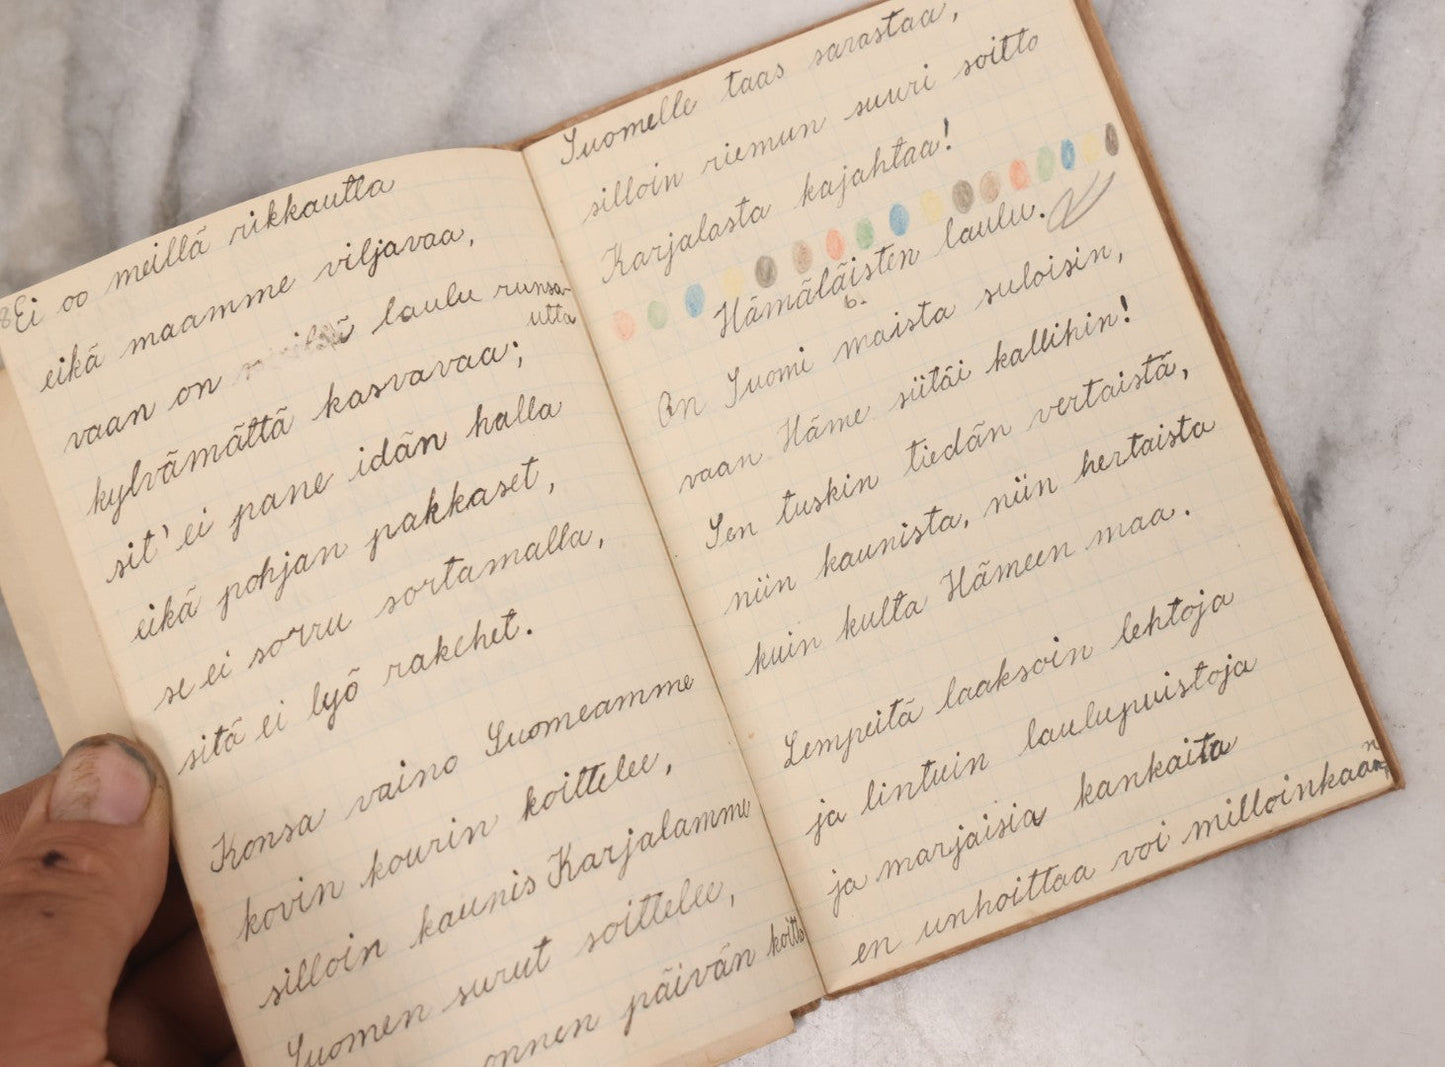 8 Ei oo meillä rikkautta
eikä maamme viljavaa,
vaan on laulu runsa-
utta
kylvämättä kasvavaa;
sit' ei pane idän halla
eikä pohjan pakkaset,
se ei sorru sortamalla,
sitä ei lyö rakehet.
Konsa vaino Suomeamme
kovin kourin koittelee,
silloin kaunis Karjalamme
Suomen surut soittelee,
onnen päivän koitto
Suomelle taas sarastaa,
silloin riemun suuri soitto
Karjalasta kajahtaa!
Hämäläisten laulu.
6.
On Suomi maista suloisin,
vaan Häme siitäi kallihin!
Sen tuskin tiedän vertaistä,
niin kaunista, niin hertaista
kuin kulta Hämeen maa.
Lempeitä laaksoin lehtoja
ja lintuin laulupuistoja
ja marjaisia kankaita
en unhoittaa voi milloinkaan
n